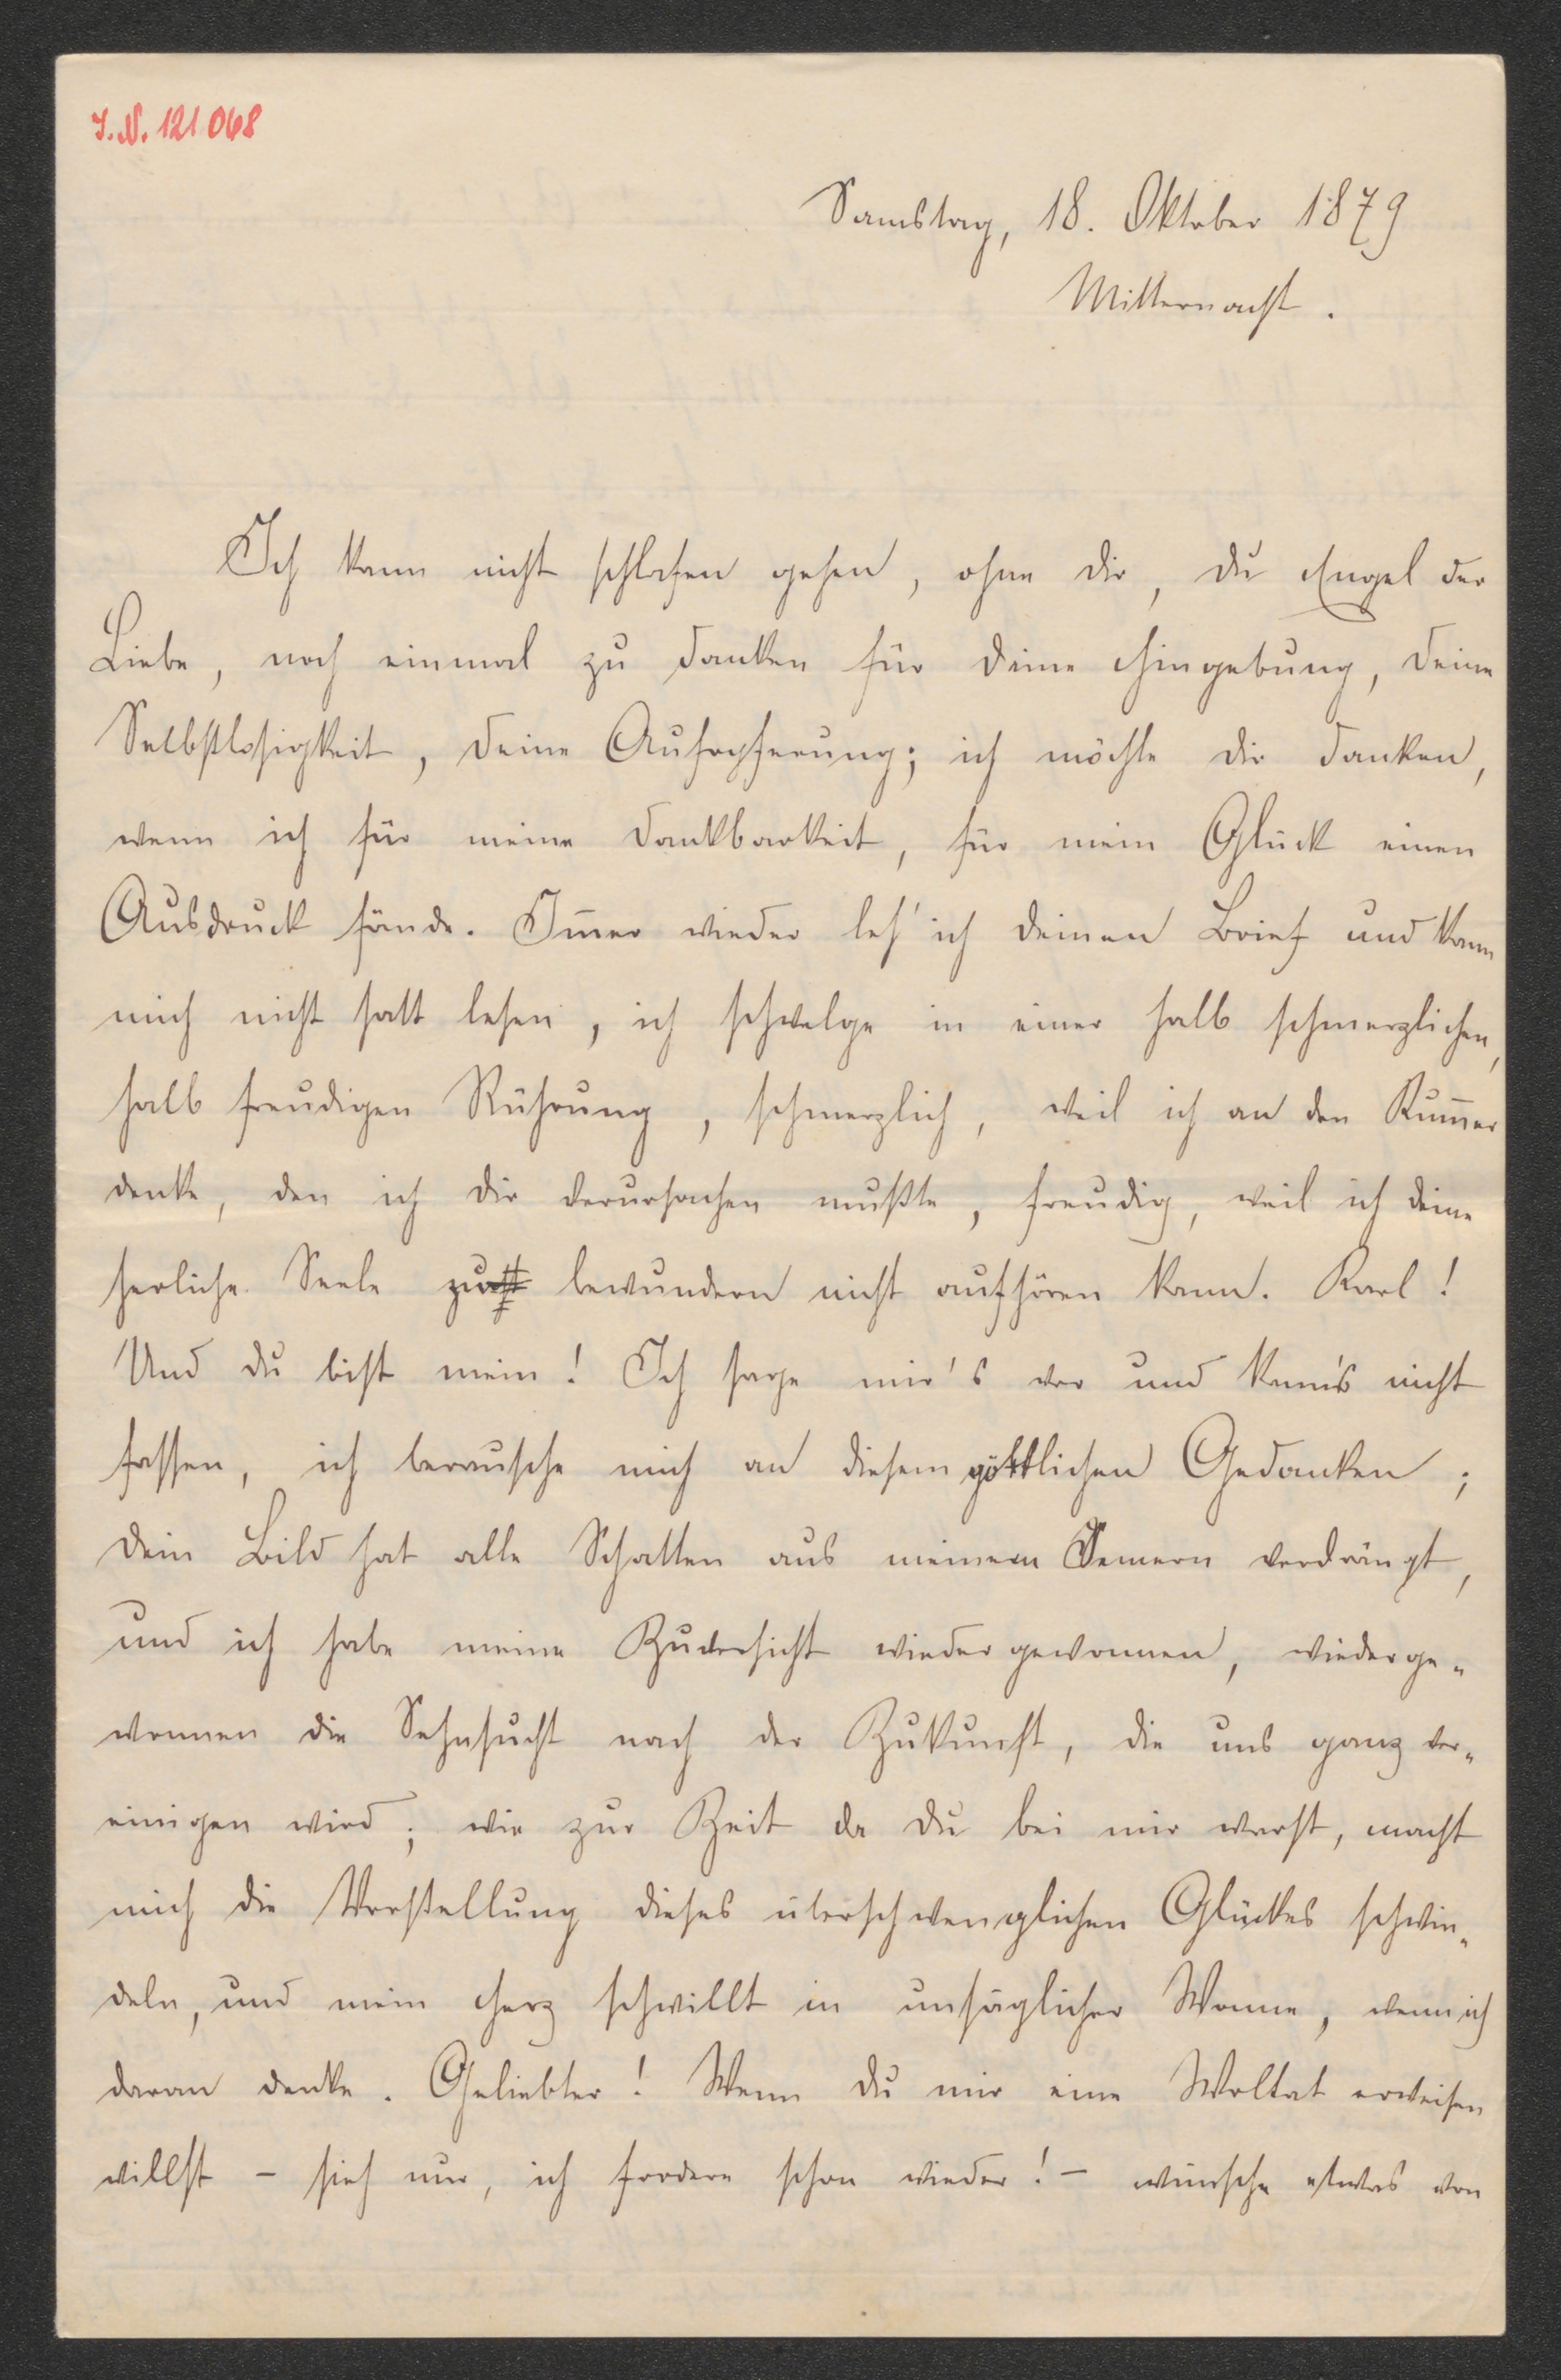 I. N. 121068
Samstag, 18. Oktober 1879
Mitternacht.
Ich kann nicht schlafen gehen, ohne dir, du Engel der
Liebe, noch einmal zu danken für deine Hingebung, deine
Selbstlosigkeit, deine Aufopferung; ich möchte dir danken,
wenn ich für meine Dankbarkeit, für mein Glück einen
Ausdruck fände. Im̅er wieder les' ich deinen Brief und kann
mich nicht satt lesen, ich schwelge in einer halb schmerzlichen,
halb freudigen Rührung, schmerzlich, weil ich an den Kum̅er
denke, den ich dir verursachen mußte, freudig, weil ich deine
herliche Seele zu bewundern nicht aufhören kann. Karl!
Und du bist mein! Ich sage mir's vor und kann's nicht
fassen, ich berausche mich an diesem göttlichen Gedanken;
dein Bild hat alle Schatten aus meinem Innern verdrängt,
und ich habe meine Zuversicht wieder gewonnen, wiederge-
wonnen die Sehnsucht nach der Zukunft, die uns ganz ver-
einigen wird; wie zur Zeit da du bei mir warst, macht
mich die Vorstellung dieses überschwenglichen Glückes schwin-
deln, und mein Herz schwillt in unsäglicher Wonne, wenn ich
daran denke. Geliebter! Wenn du mir eine Woltat erweisen
willst – sieh nur, ich fordere schon wieder! – wünsche etwas von